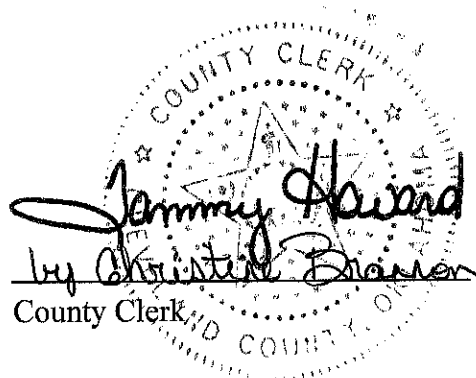 COUNTY CLERK
Tammy Howard
by Christine Brannon
County Clerk
ND COUNTY, O AHMA